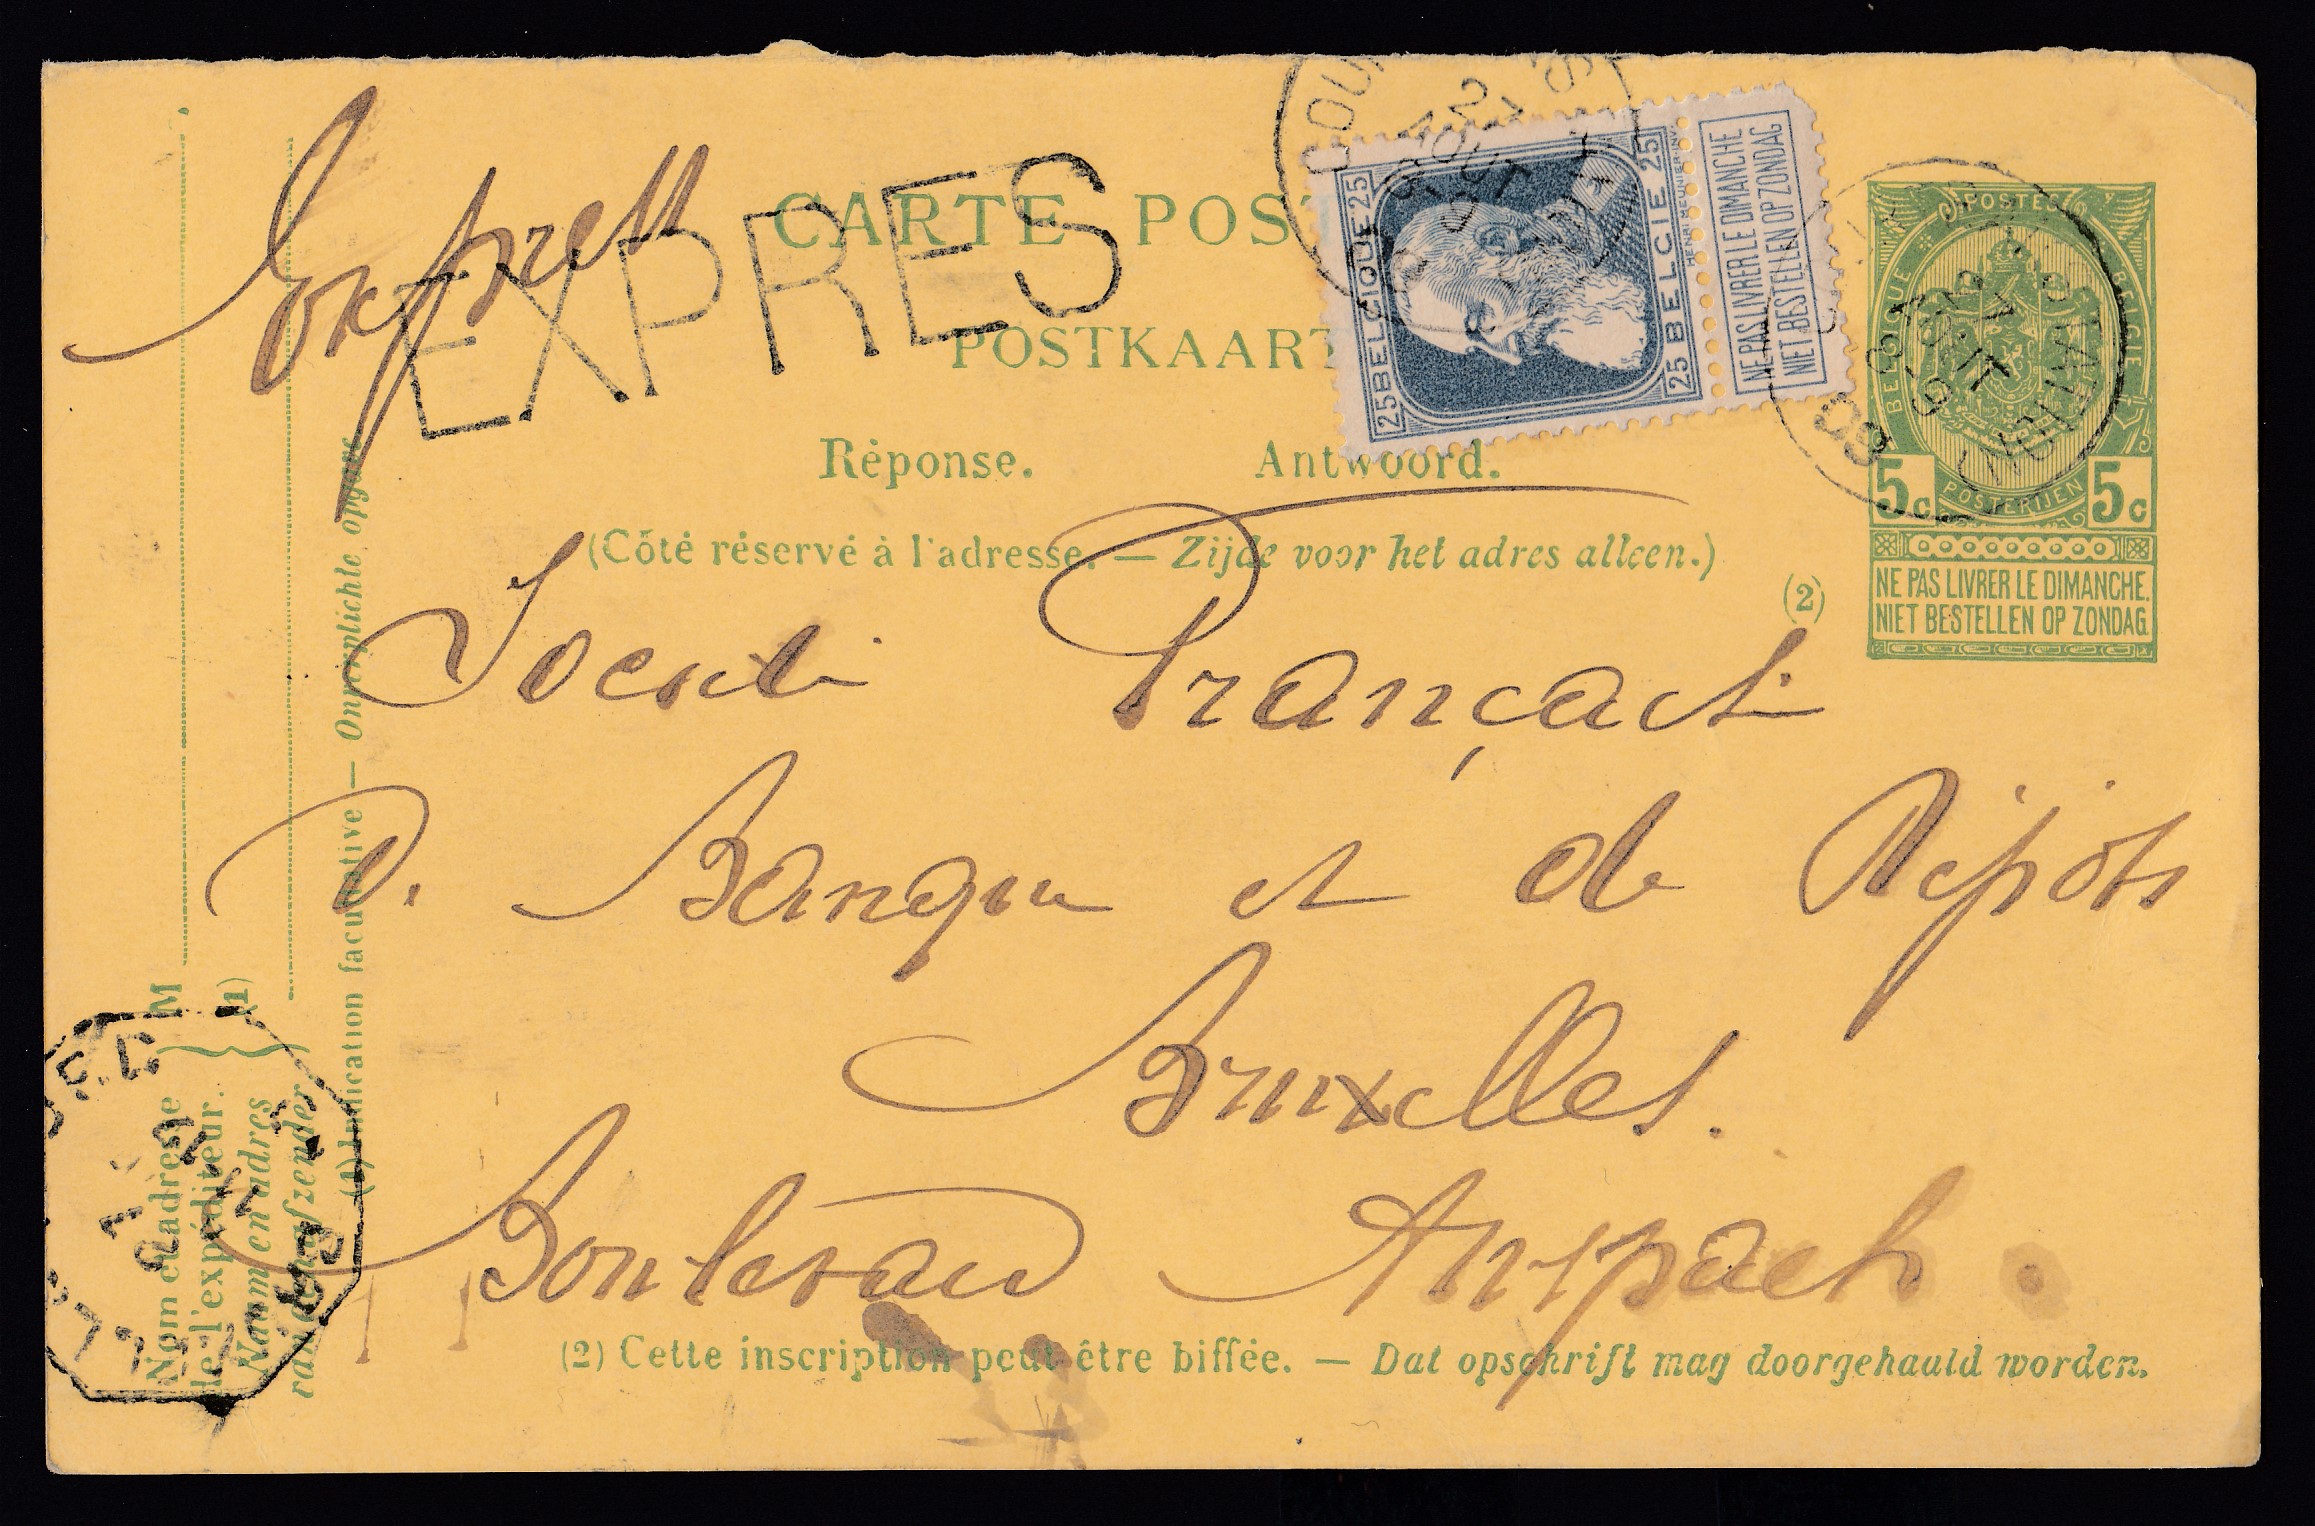 Express
EXPRES
CARTE POST
POSTKAART
Réponse. Antwoord.
(Côté réservé à l'adresse. — Zijde voor het adres alleen.)
25 BELGIQUE 25
25 BELGIE 25
NE PAS LIVRER LE DIMANCHE
NIET BESTELLEN OP ZONDAG
27
AOUT
8-9
POSTES
BELGIQUE
BELGIE
POSTERIJEN
5c 5c
NE PAS LIVRER LE DIMANCHE.
NIET BESTELLEN OP ZONDAG.
27
AOUT
8-9
08
(2)
Société Française
De Banque et de Dépôts
Bruxelles.
Boulevard Anspach.
(2) Cette inscription peut être biffée. — Dat opschrift mag doorgehaald worden.
M
Nom et adresse
de l'expéditeur.
Naam en adres
van den afzender
(1)
(1) Indication facultative — Onverplichte opgave